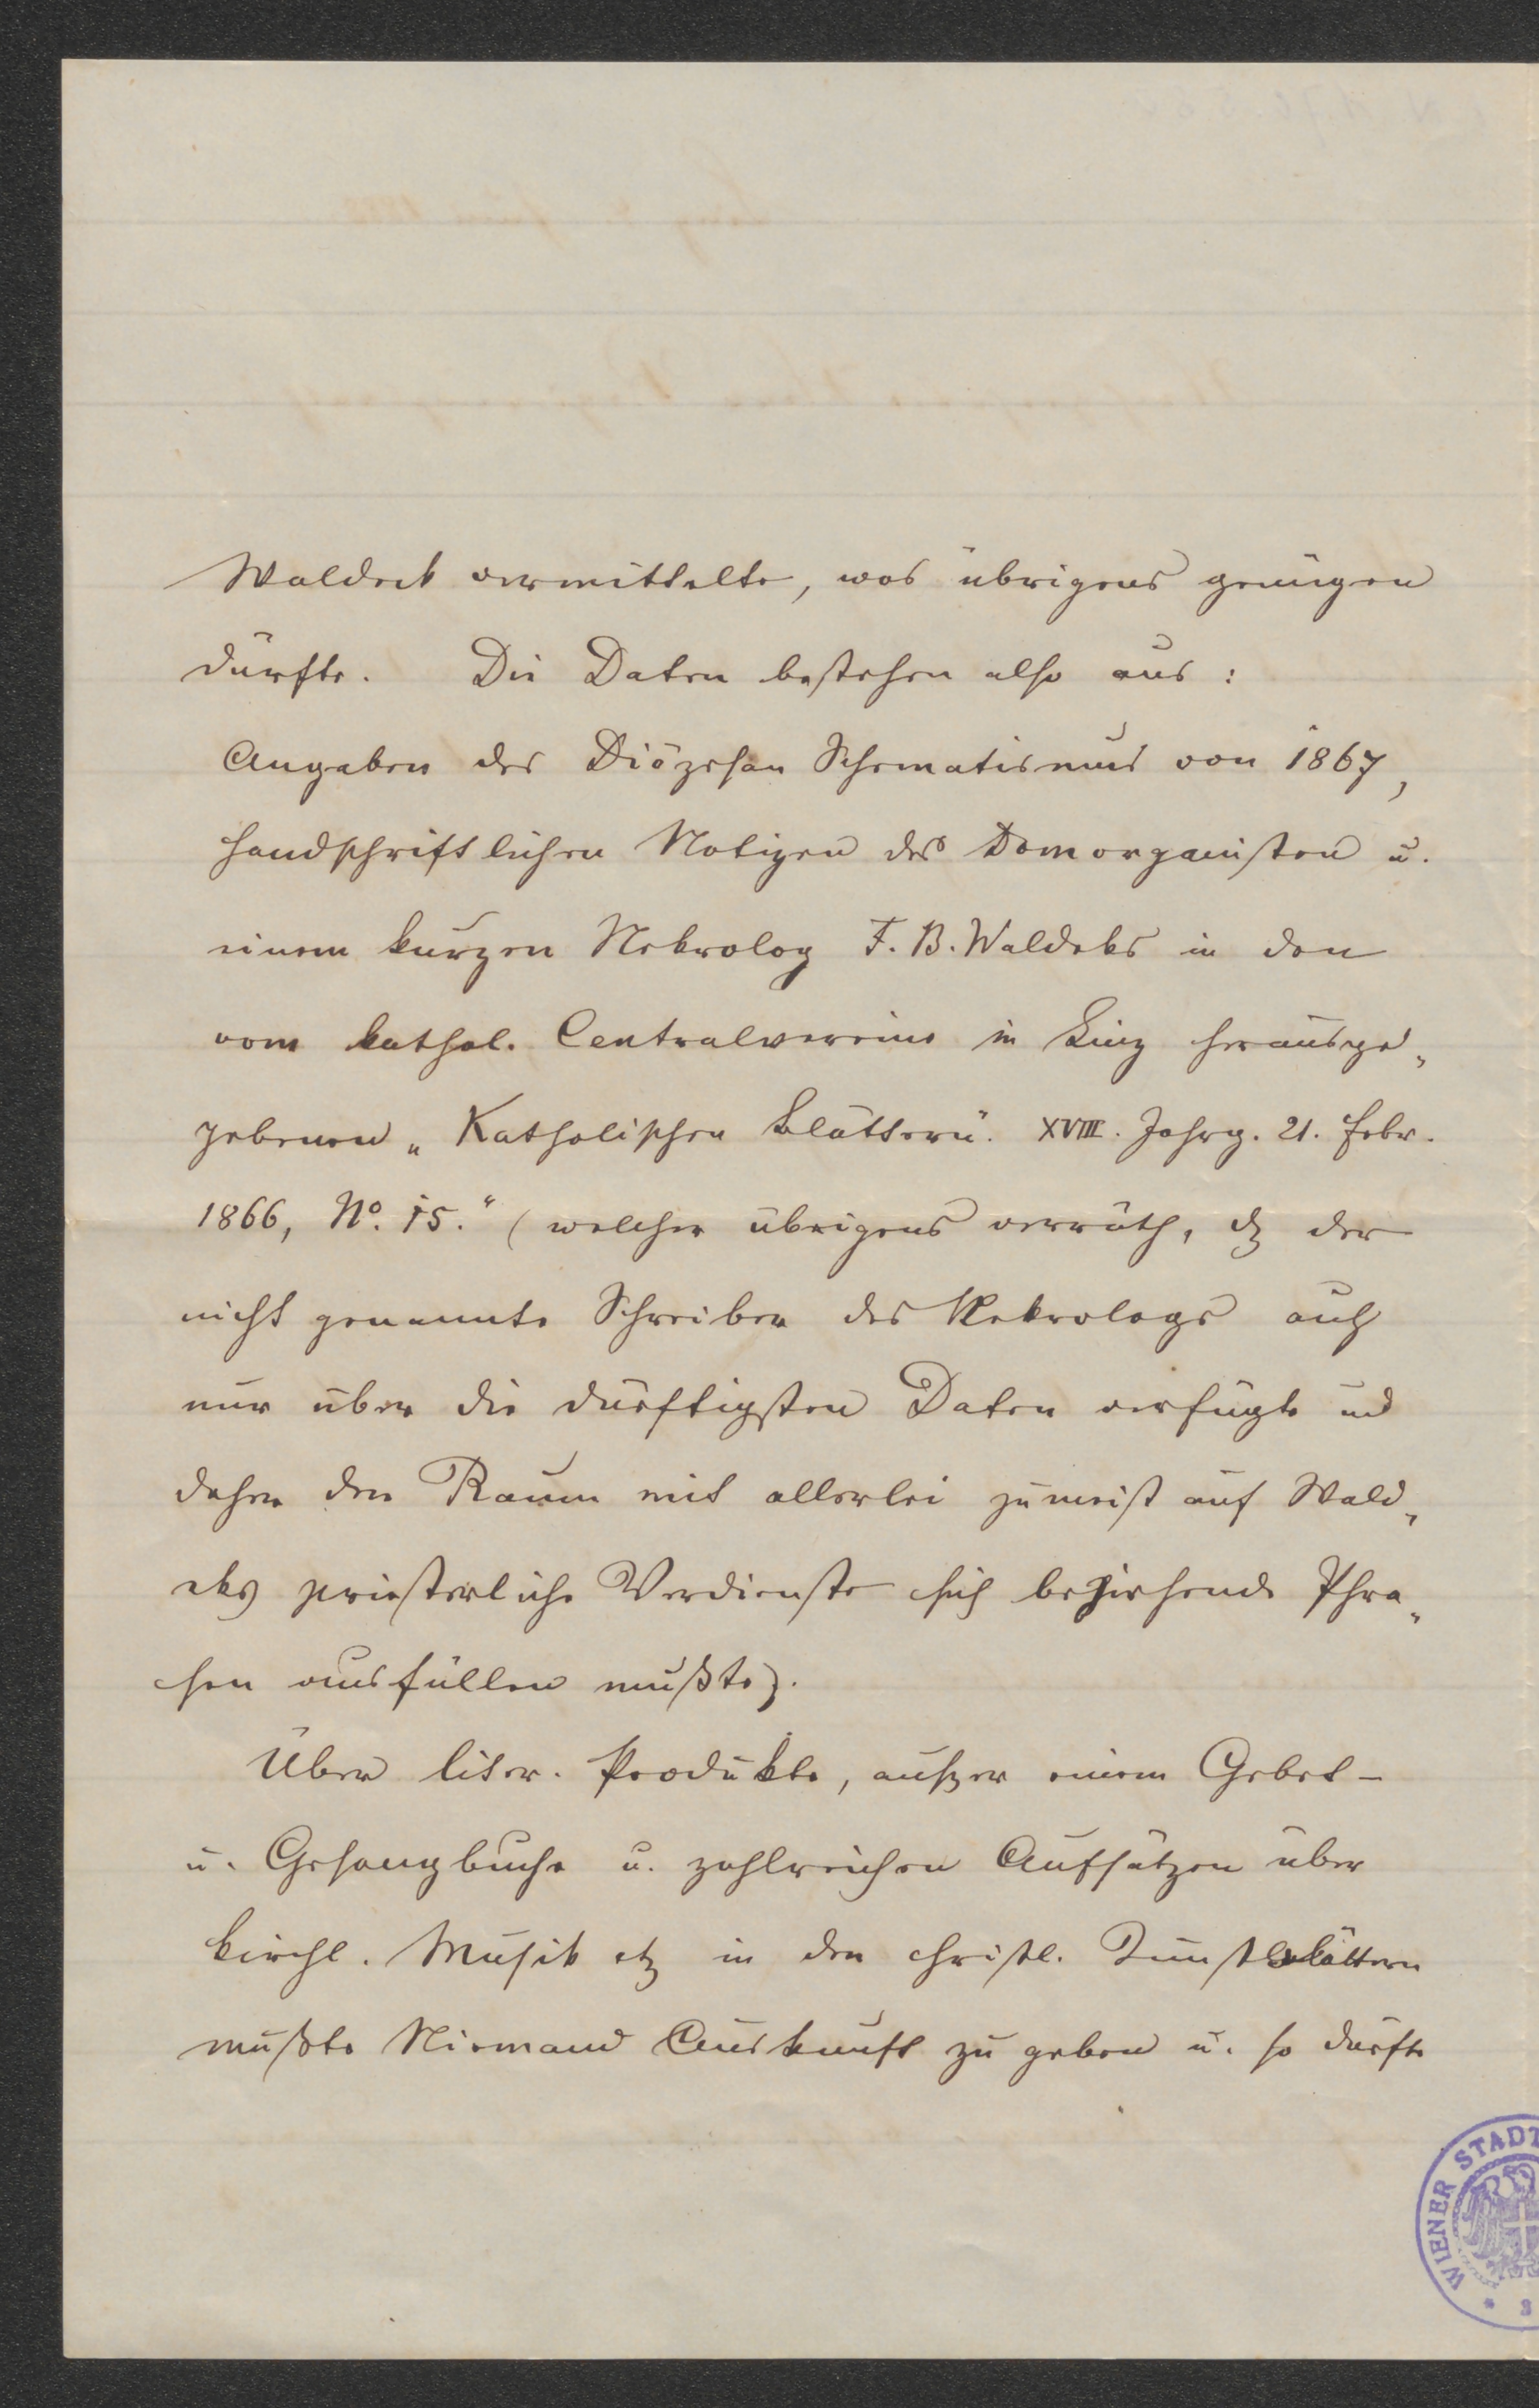 Waldeck vermittelte, was übrigens genügen
dürfte. Die Daten bestehen also aus:
Angaben des Diözesan Schematismus von 1867,
handschriftlichen Notizen des Domorganisten u.
einem kurzen Nekrolog F. B. Waldeks in den
vom kathol. Centralvereine in Linz herausge„
gebenen „Katholischen Blättern". XVIII. Jahrg. 21. Febr.
1866, No. 15." (welcher übrigens verräth, dz der
nicht genannte Schreiber des Nekrologs auch
nur über die dürftigsten Daten verfügte und
daher den Raum mit allerlei zumeist auf Wald„
eks priesterliche Verdienste sich beziehende Phra„
sen ausfüllen mußte).
Über liter. Produkte, außer einem Gebet-
u. Gesangbuche u. zahlreichen Aufsätzen über
kirchl. Musik etz in den christl. Kunstblättern
wußte Niemand Auskunft zu geben u. so dürfte
WIENER STADT